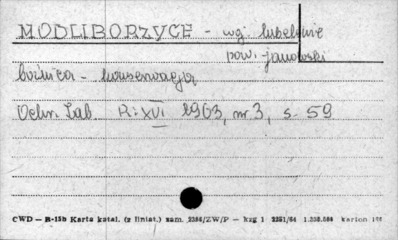 MODLIBORZYCE - woj. lubelskie
pow. janowski
bożnica - konserwacja
Ochr. Zab. R: XVI 1963, nr 3, s. 59
CWD — B-15b Karta katal. (z liniat.) zam. 2384/ZW/P — kzg 1 2251/64 1.350.000 karton